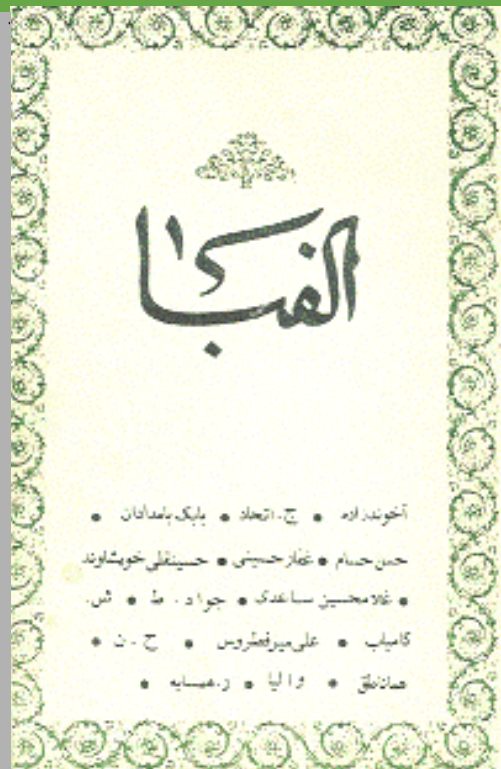 الفبا
آخوندزاده • ج. اتحاد • بابک بامدادان •
حسن حسام • غفار حسینی • حسینقلی خویشاوند
• غلامحسین ساعدی • جواد. ط • ش.
کامیاب • علی میرفطروس • ح. ن •
هما ناطق • والیا • ر. همسایه •